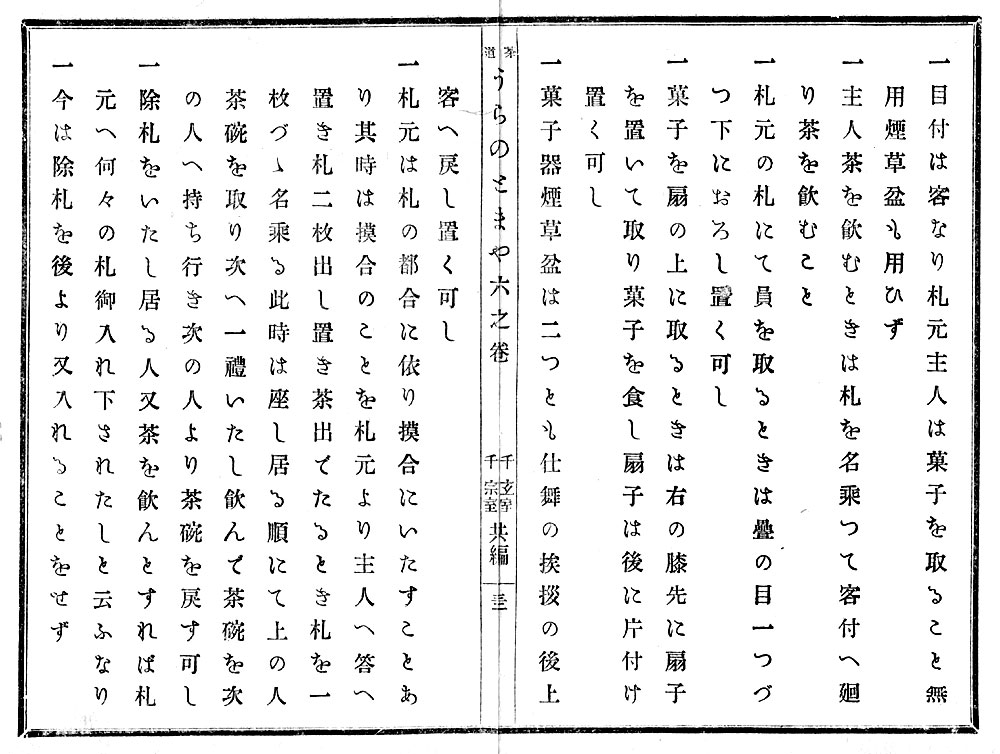 一目付は客なり札元主人は菓子を取ること無
用煙草盆も用ひず
一主人茶を飮むときは札を名乘つて客付へ廻
り茶を飮むこと
一札元の札にて員を取るときは疊の目一つづ
つ下におろし置く可し
一菓子を扇の上に取るときは右の膝先に扇子
を置いて取り菓子を食し扇子は後に片付け
置く可し
一菓子器煙草盆は二つとも仕舞の挨拶の後上
茶道
うらのとまや六之卷
千玄室
千宗室
共編
客へ戻し置く可し
一札元は札の都合に依り摸合にいたすことあ
り其時は摸合のことを札元より主人へ答へ
置き札二枚出し置き茶出でたるとき札を一
枚づゝ名乘る此時は座し居る順にて上の人
茶碗を取り次へ一禮いたし飮んで茶碗を次
の人へ持ち行き次の人より茶碗を戻す可し
一除札をいたし居る人又茶を飮んとすれば札
元へ何々の札御入れ下されたしと云ふなり
一今は除札を後より又入れることをせず